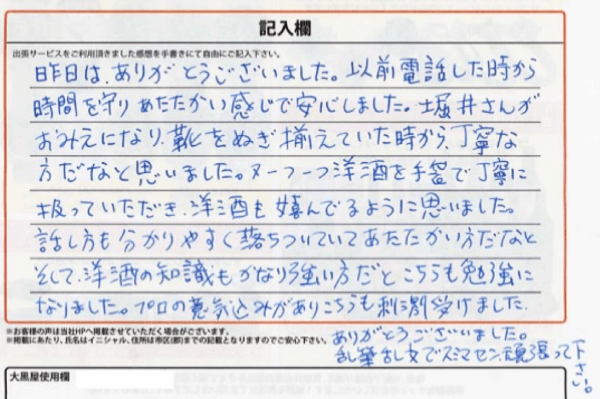 記入欄
出張サービスをご利用頂きました感想を手書きにて自由にご記入下さい。
昨日は、ありがとうございました。以前電話した時から
時間を守りあたたかい感じで安心しました。堀井さんが
おみえになり、靴をぬぎ揃えていた時から、丁寧な
方だなと思いました。一つ一つ洋酒を手袋で丁寧に
扱っていただき、洋酒も嬉んでるように思いました。
話し方も分かりやすく落ちついていてあたたかい方だなと
そして、洋酒の知識もかなり強い方だとこちらも勉強に
なりました。プロの意気込みがありこちらも刺激受けました。
ありがとうございました。
乱筆乱文でスミマセン。頑張って下さい。
※お客様の声は当社HPへ掲載させていただく場合がございます。
※掲載にあたり、氏名はイニシャル、住所は市区(郡)までの記載となりますのでご安心下さい。
大黒屋使用欄